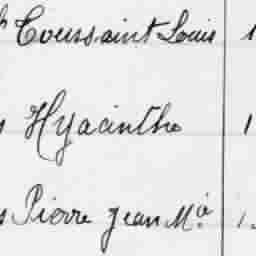 Toussaint Louis 1
Hyacinthe 1
Pierre Jean Mª 1